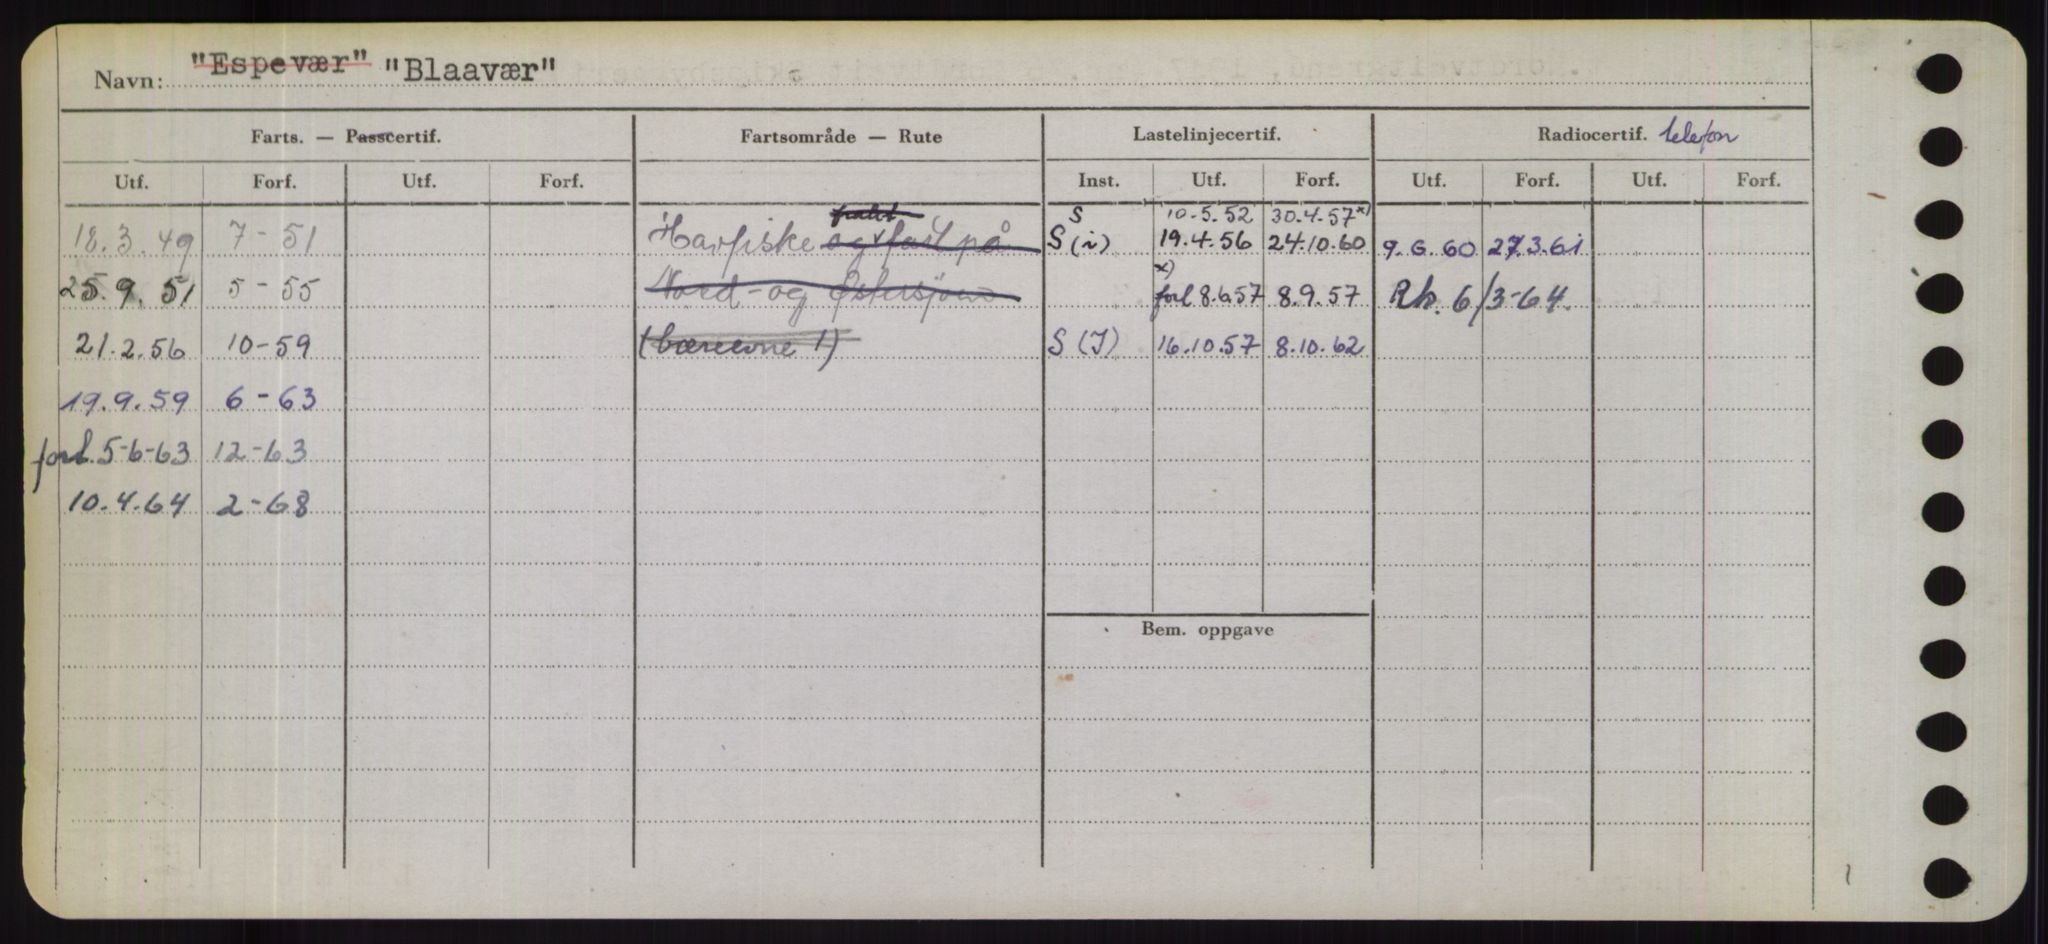 Navn: "Espevær" "Blaavær"
Farts. — Passcertif. Fartsområde — Rute Lastelinjecertif. Radiocertif. telefon
Utf. Forf. Utf. Forf. Inst. Utf. Forf. Utf. Forf. Utf. Forf.
S 10.5.52 30.4.57 x)
18.3.49 7-51 Havfiske og fast på S (i) 19.4.56 24.10.60 9.6.60 27.3.61
25.9.51 5-55 Nord- og Østersjøen x) forl 8.6.57 8.9.57 Rk. 6/3-64.
21.2.56 10-59 (bæreevne !) S (I) 16.10.57 8.10.62
19.9.59 6-63
forl. 5-6-63 12-63
10.4.64 2-68
Bem. oppgave